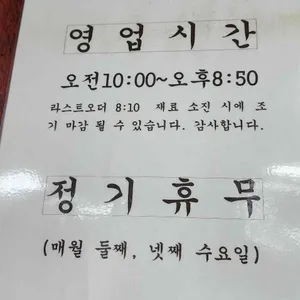 영업시간
오전10:00~오후8:50
라스트오더 8:10 재료 소진 시에 조
기 마감 될 수 있습니다. 감사합니다.
정기휴무
(매월 둘째, 넷째 수요일)